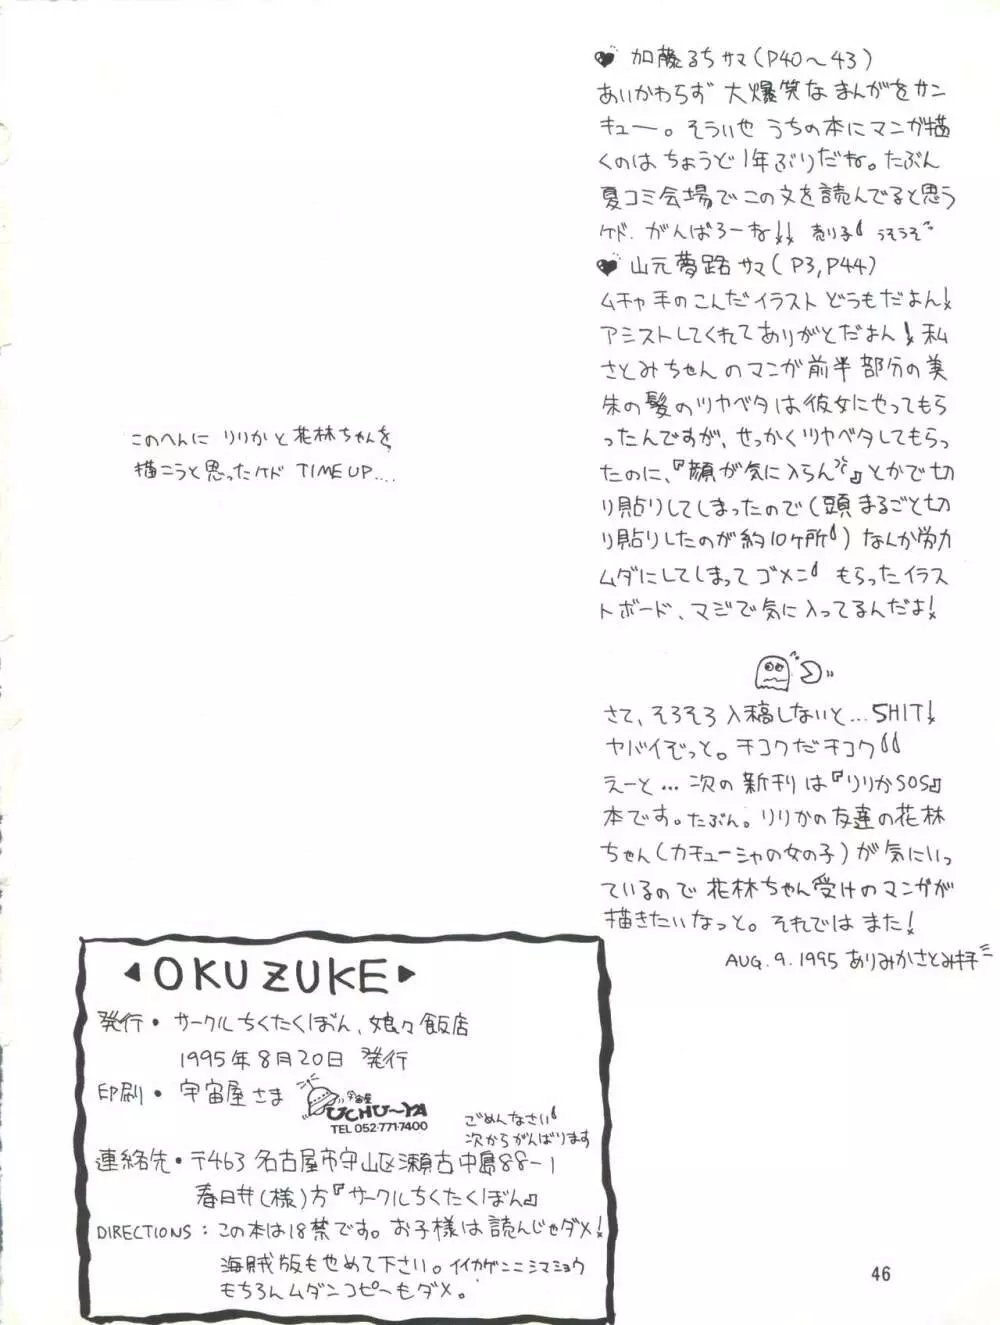 ♥ 加藤るちサマ(P40～43)
あいかわらず 大爆笑なまんがをサン
キュー。そういや うちの本にマンガ描
くのは ちょうど1年ぶりだね。たぶん
夏コミ会場でこの文を読んでると思う
ケド. がんばろーな!! 売り子 うそうそ
♥ 山元夢路サマ(P3,P44)
ムチャ手のこんだイラスト どうもだよん!
アシストしてくれてありがとだよん! 私
さとみちゃんのマンガ前半部分の美
朱の髪のツヤベタは彼女にやってもら
ったんですが、せっかくツヤベタしてもらっ
たのに、『顔が気に入らん』とかで切
り貼りしてしまったので(頭まるごと切
り貼りしたのが約10ヶ所)なんか労力
ムダにしてしまってゴメン もらったイラス
トボード、マジで気に入ってるんだよ!
このへんに りりかと花林ちゃんを
描こうと思ったケド TIME UP....
さて、そろそろ入稿しないと...SHIT!
ヤバイぞっと。チコクだチコク
えーと...次の新刊は『りりかSOS』
本です。たぶん。りりかの友達の花林
ちゃん(カチューシャの女の子)が気にいっ
ているので 花林ちゃん受けのマンガが
描きたいなっと。それでは また!
AUG.9.1995 ありみかさとみ拝
OKUZUKE
発行・サークルちくたくぼん、娘々飯店
1995年8月20日 発行
印刷・宇宙屋さま
宇宙屋
UCHU～YA
TEL 052・771・7400
ごめんなさい
次からがんばります
連絡先・〒463 名古屋市守山区瀬古中島88-1
春日井(様)方『サークルちくたくぼん』
DIRECTIONS：この本は18禁です。お子様は読んじゃダメ!
海賊版もやめて下さい。イイカゲンニシマショウ
もちろんムダンコピーもダメ。
46